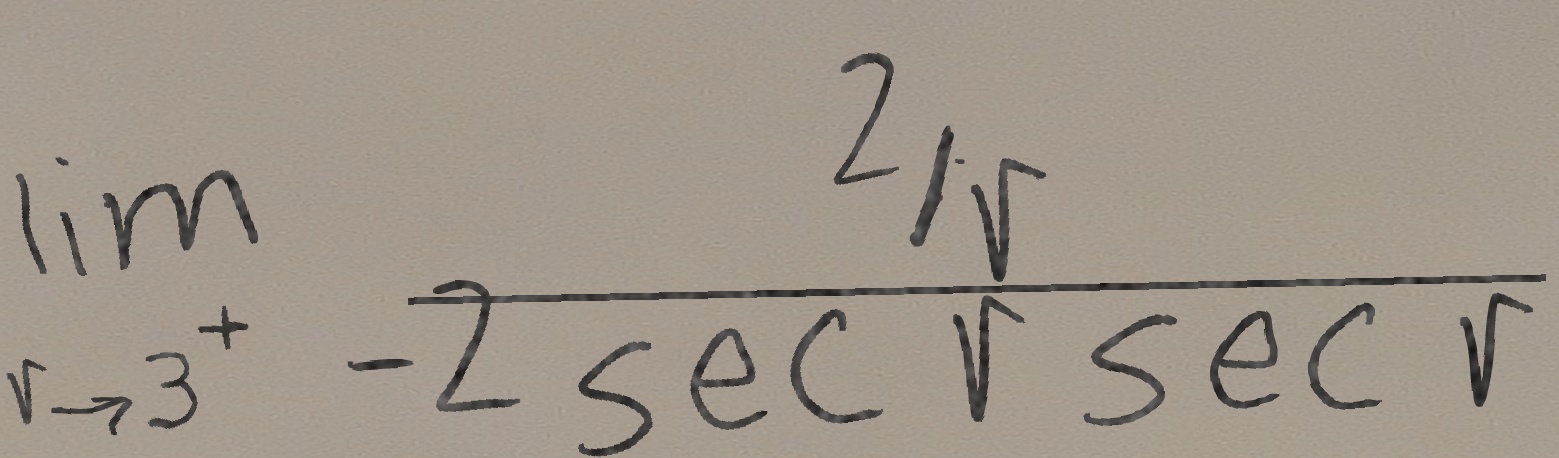 lim r→3⁺ (2/r)/(-2 sec r sec r)